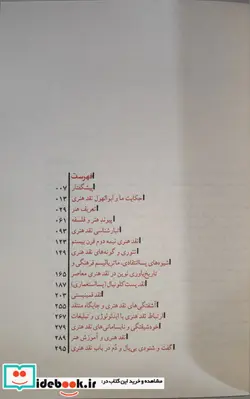 فهرست
پیشگفتار ۰۰۷
حکایت ما و ابوالهول نقد هنری ۰۱۳
تعریف هنر ۰۲۹
پیوند هنر و فلسفه ۰۶۱
تبارشناسی نقد هنری ۰۹۳
نقد هنری نیمه دوم قرن بیستم ۱۲۳
تئوری و گونه‌های نقد هنری ۱۴۹
شیوه‌های پساانتقادی، ماتریالیسم فرهنگی و
تاریخ‌باوری نوین در نقد هنری معاصر ۱۶۵
نقد پست کلونیال (پسااستعماری) ۱۸۷
نقد فمینیستی ۲۰۳
آشفتگی‌های نقد هنری و جایگاه منتقد ۲۵۵
ارتباط نقد هنری با ایدئولوژی و تبلیغات ۲۶۷
خودشیفتگی و نابسامانی‌های نقد هنری ۲۷۹
نقد هنری و آموزش هنر ۲۸۹
گفت و شنودی بی‌بال و دُم در باب نقد هنری ۲۹۵
مشاهده و خرید این کتاب در:
iranidebook.ir